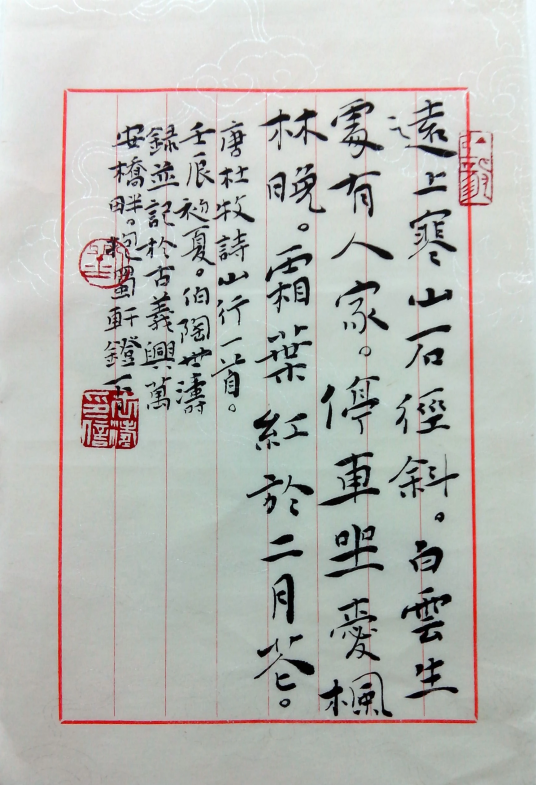 遠上寒山石徑斜。白雲生
處有人家。停車坐愛楓
林晚。霜葉紅於二月花。
唐杜牧詩山行一首。
壬辰初夏。伯陶世濤
錄並記於古義興萬
安橋畔。抱蜀軒鐙下